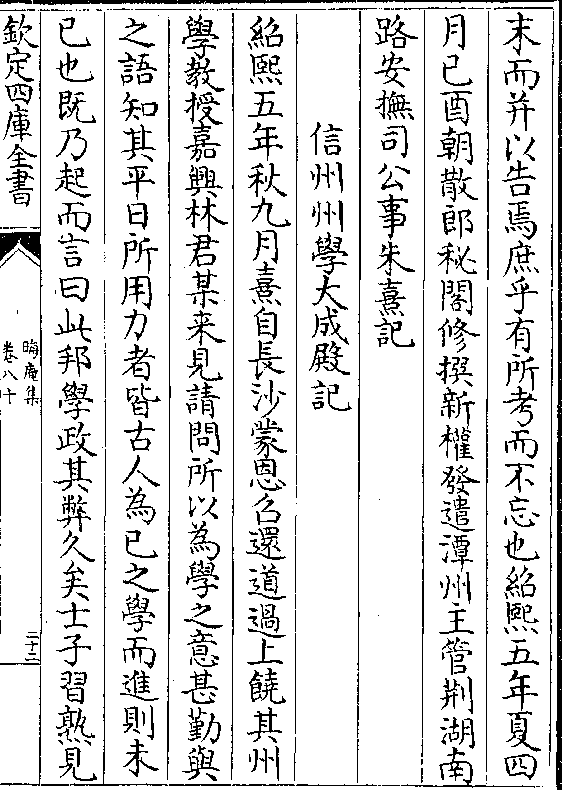 末而并以告焉庶乎有所考而不忘也紹熙五年夏四
月已酉朝散郎秘閣修撰新權發遣潭州主管荆湖南
路安撫司公事朱熹記
信州州學大成殿記
紹熙五年秋九月熹自長沙蒙恩召還道過上饒其州
學教授嘉興林君某来見請問所以為學之意甚勤與
之語知其平日所用力者皆古人為已之學而進則未
已也既乃起而言曰此邦學政其弊久矣士子習熟見
欽定四庫全書
晦庵集
卷八十
二十二